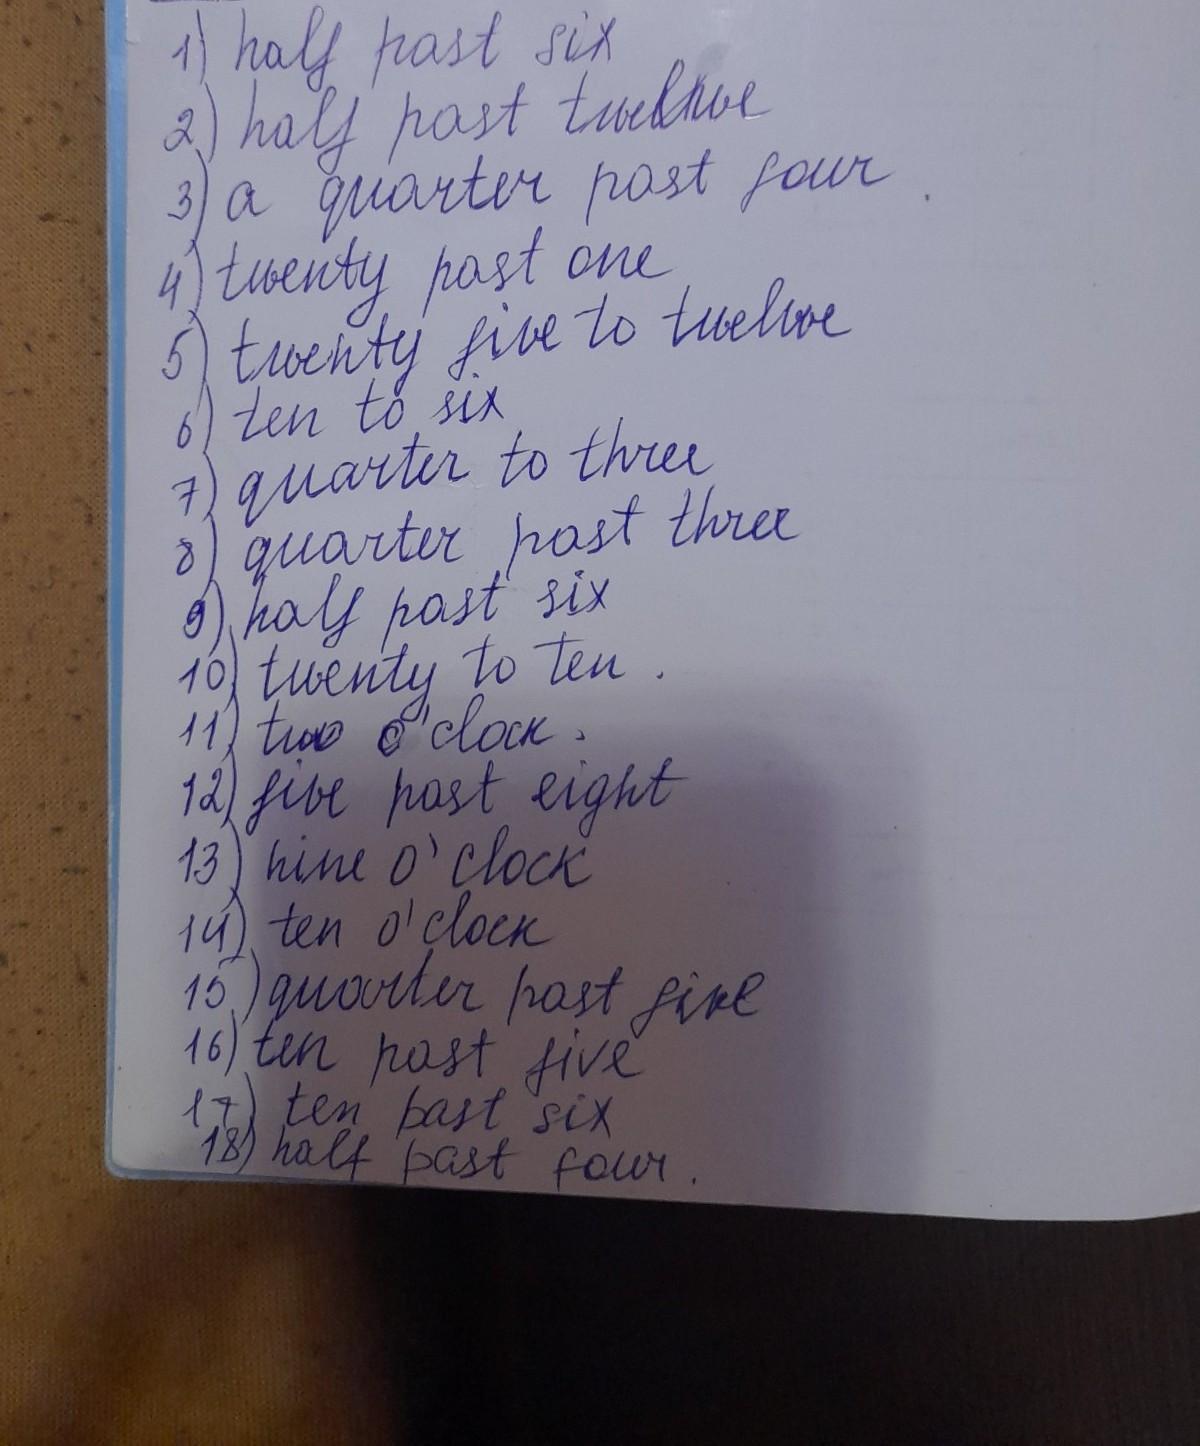 1) half past six
2) half past twelve
3) a quarter past four
4) twenty past one
5) twenty five to twelve
6) ten to six
7) quarter to three
8) quarter past three
9) half past six
10) twenty to ten.
11) two o'clock.
12) five past eight
13) nine o'clock
14) ten o'clock
15) quarter past five
16) ten past five
17) ten past six
18) half past four.